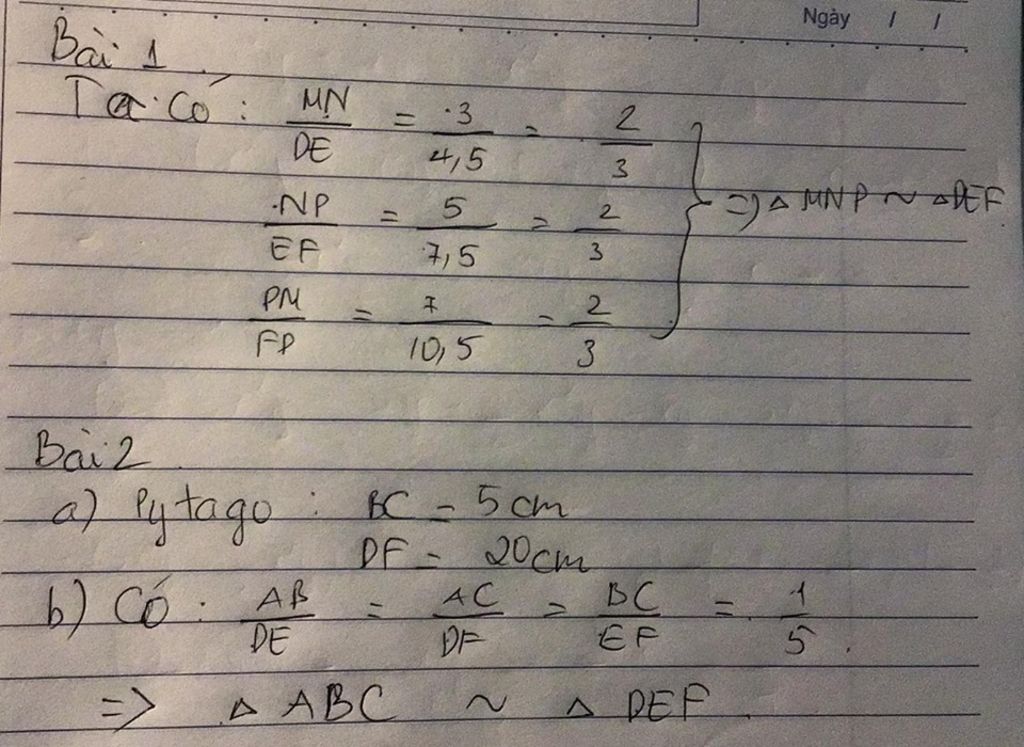 Ngày / /
Bài 1
Ta có: MN/DE = 3/4,5 = 2/3
NP/EF = 5/7,5 = 2/3
PM/FD = 7/10,5 = 2/3
=> △ MNP ~ △DEF
Bài 2
a) Pytago: BC = 5cm
DF = 20cm
b) Có: AB/DE = AC/DF = BC/EF = 1/5.
=> △ ABC ~ △ DEF.